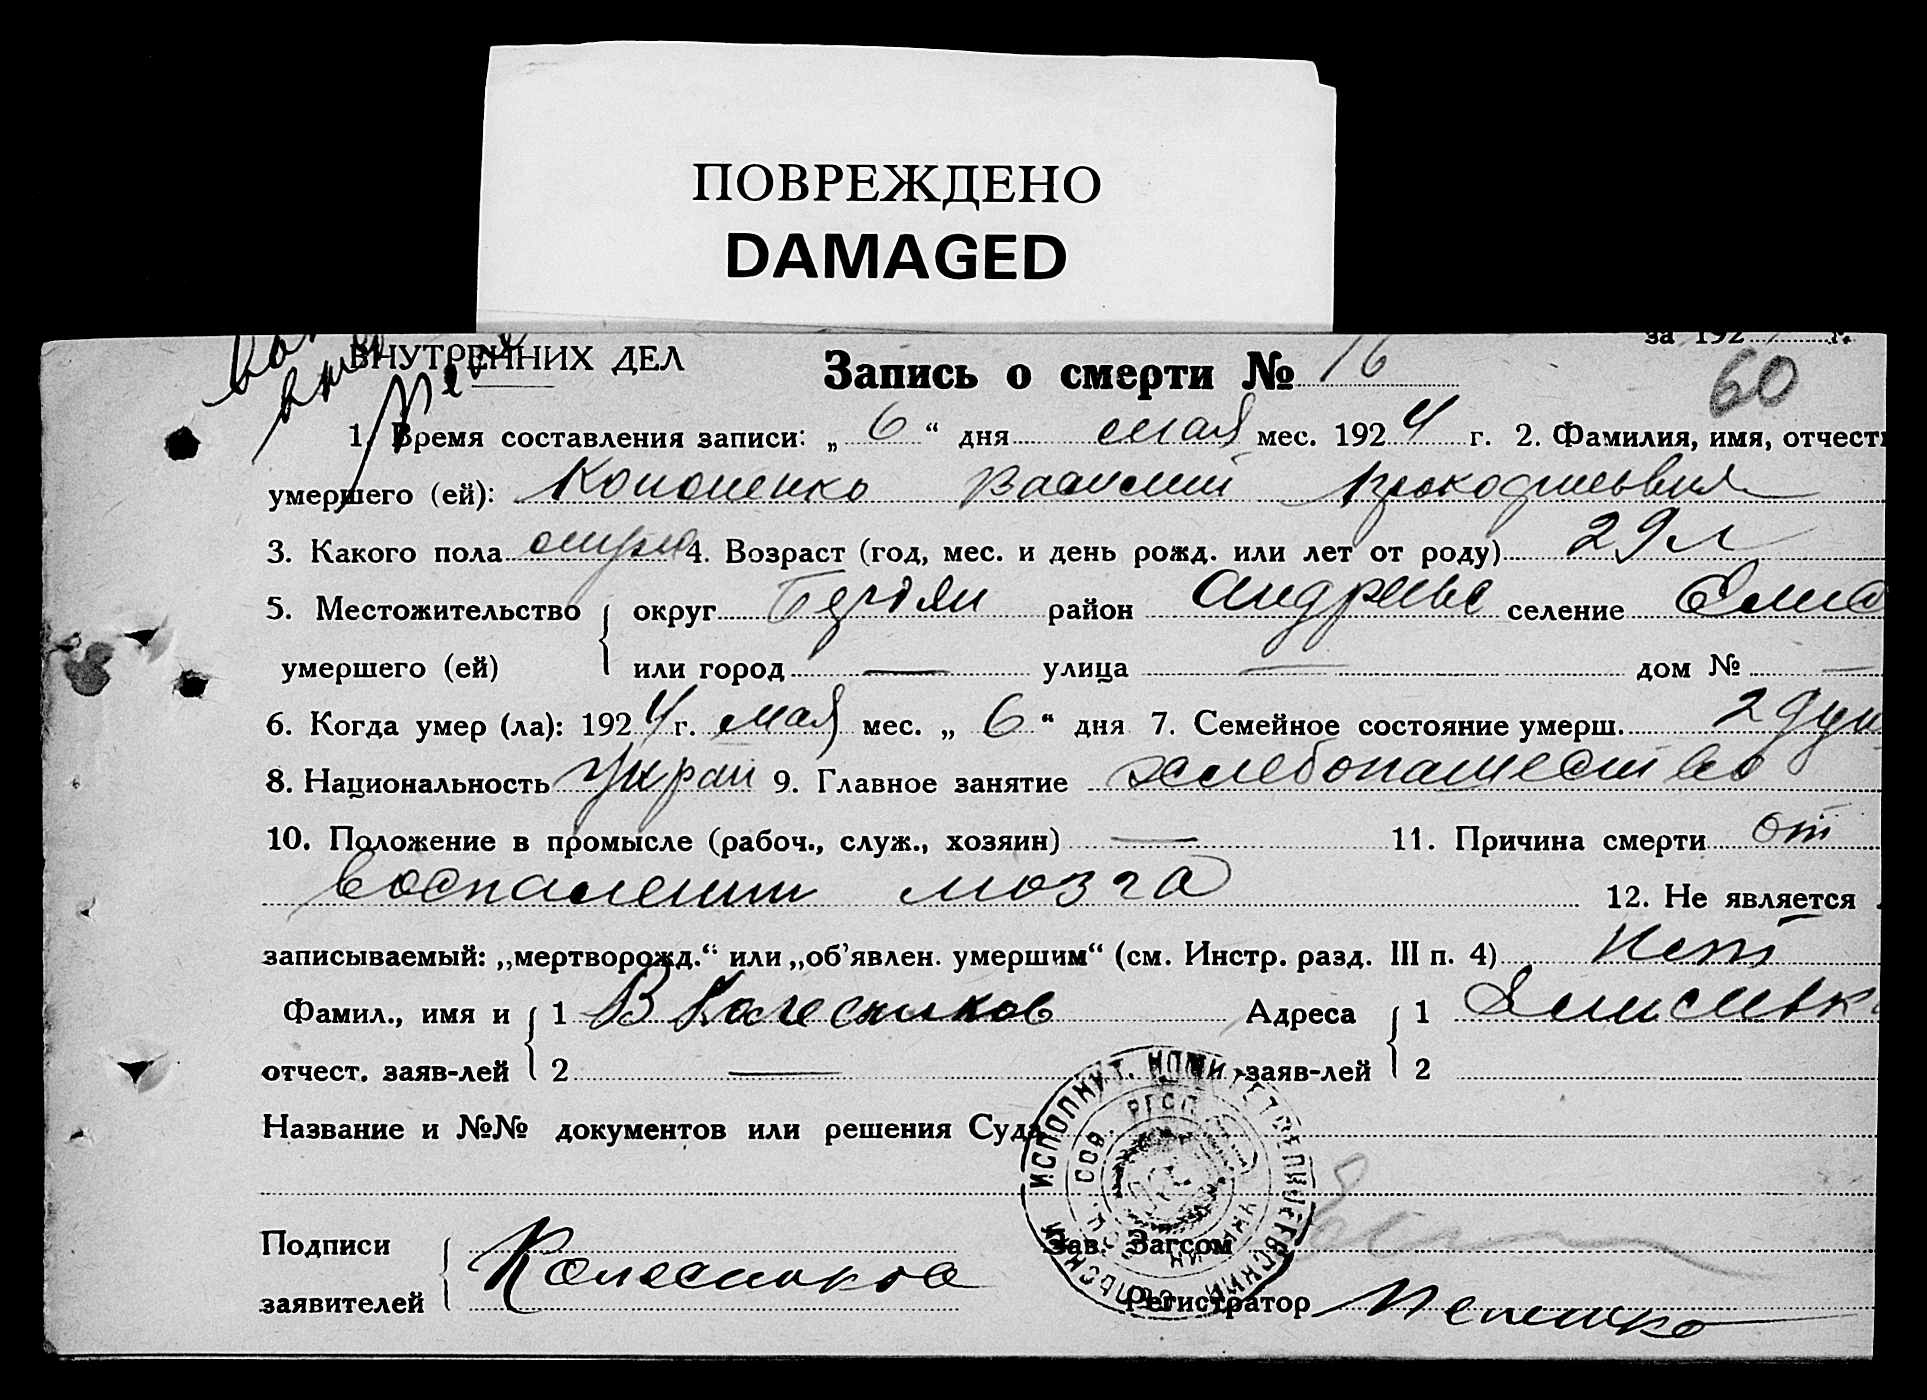 ПОВРЕЖДЕНО
DAMAGED
за 192 г.
ВНУТРЕННИХ ДЕЛ
Запись о смерти № 16
60
1. Время составления записи: „ 6 “ дня мая мес. 1924 г. 2. Фамилия, имя, отчест
умершего (ей): Кононенко Василий Прокофиевич
3. Какого пола муж 4. Возраст (год, мес. и день рожд. или лет от роду) 29 л
5. Местожительство округ Бердян район Андреевс селение Елис
умершего (ей) или город — улица — дом № —
6. Когда умер (ла): 1924 г. мая мес. „ 6 “ дня 7. Семейное состояние умерш. 2 душ
8. Национальность Украи 9. Главное занятие хлебопашество
10. Положение в промысле (рабоч., служ., хозяин) — 11. Причина смерти от
воспалении мозга 12. Не является
записываемый: „мертворожд.“ или „об'явлен. умершим“ (см. Инстр. разд. III п. 4) Нет
Фамил., имя и 1 В Колесников Адреса 1 Елисеевк
отчест. заяв-лей 2 — заяв-лей 2
Название и №№ документов или решения Суда
ИСПОЛНИТ.
СОВ.
Подписи Зав. Загсом
Колесников
заявителей Регистратор